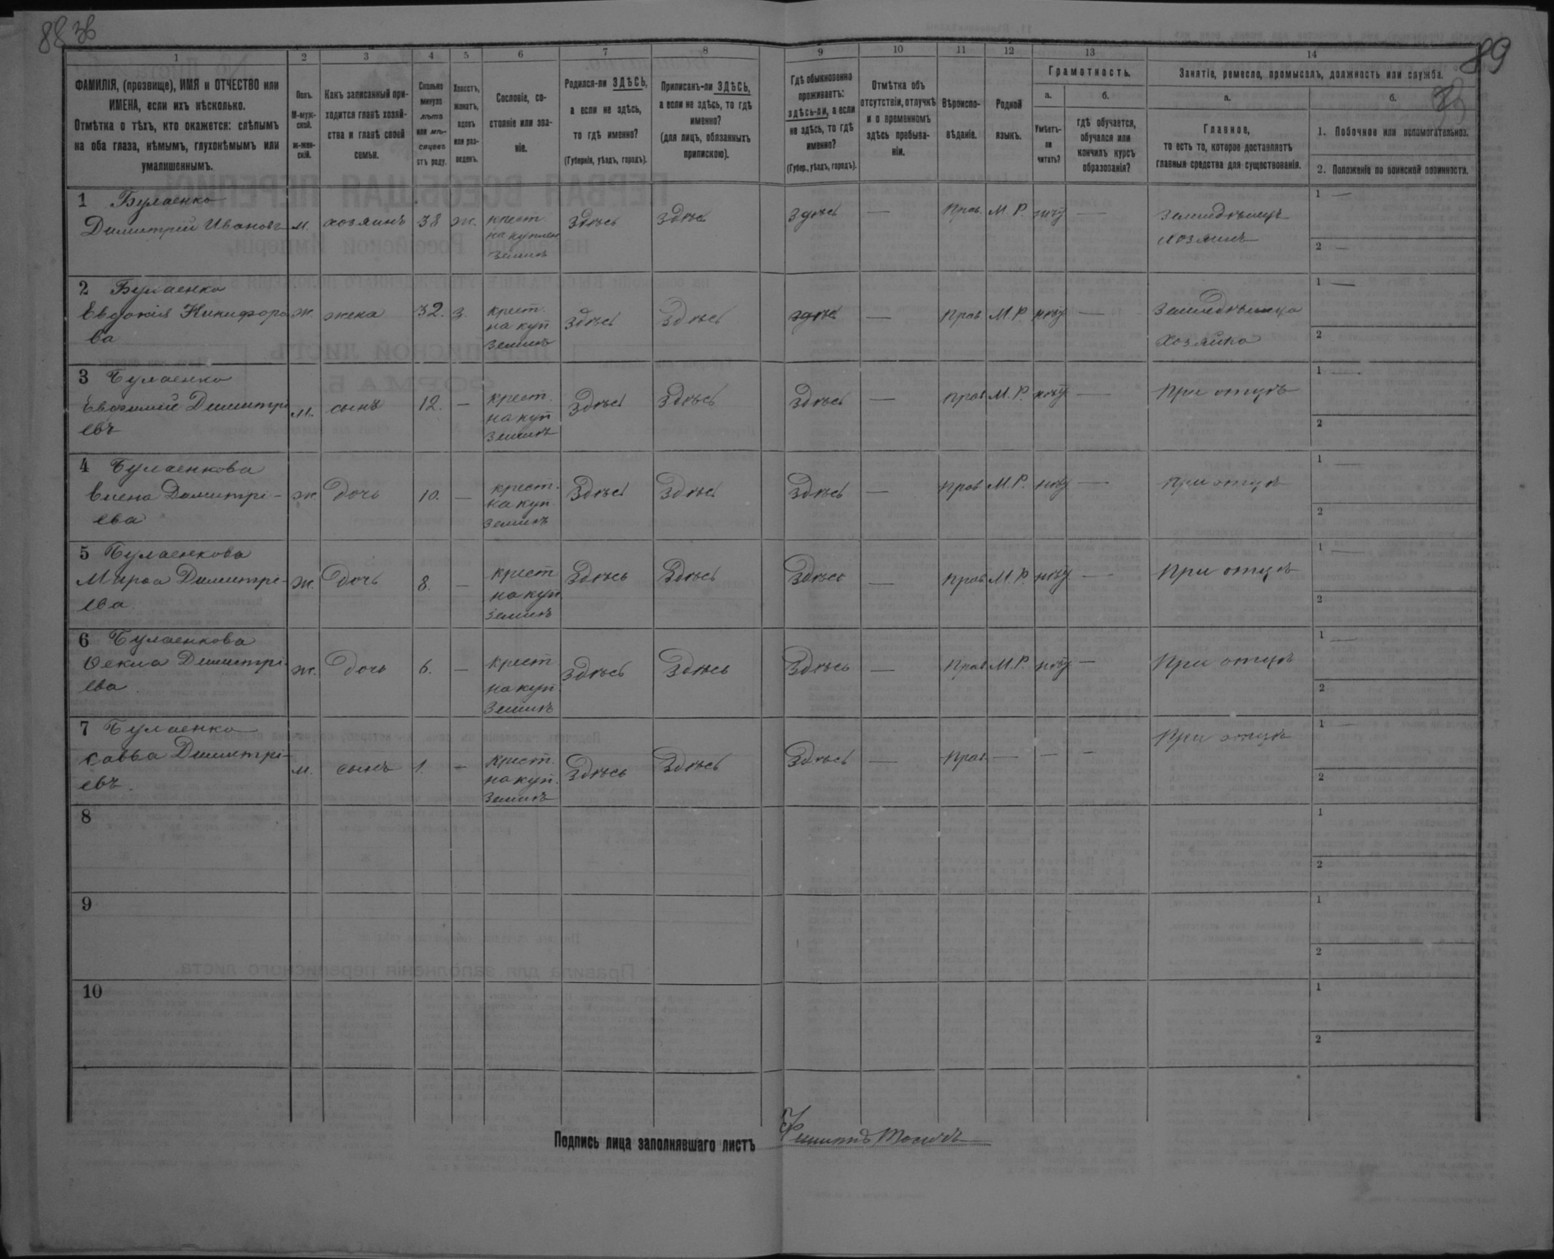 88 об
89
1 2 3 4 5 6 7 8 9 10 11 12 13 14
ФАМИЛІЯ, (прозвище), ИМЯ и ОТЧЕСТВО или
ИМЕНА, если ихъ нѣсколько.
Отмѣтка о тѣхъ, кто окажется: слѣпымъ
на оба глаза, нѣмымъ, глухонѣмымъ или
умалишеннымъ.
Полъ.
М-муж-
ской.
ж-жен-
скій.
Какъ записанный при-
ходится главѣ хозяй-
ства и главѣ своей
семьи.
Сколько
минуло
лѣтъ
или мѣ-
сяцевъ
отъ роду.
Холостъ,
женатъ,
вдовъ
или раз-
веденъ.
Сословіе, со-
стояніе или зва-
ніе.
Родился-ли ЗДѢСЬ,
а если не здѣсь,
то гдѣ именно?
(Губернія, уѣздъ, городъ).
Приписанъ-ли ЗДѢСЬ,
а если не здѣсь, то гдѣ
именно?
(для лицъ, обязанныхъ
припискою).
Гдѣ обыкновенно
проживаетъ:
здѣсь-ли, а если
не здѣсь, то гдѣ
именно?
(Губер., уѣздъ, городъ).
Отмѣтка объ
отсутствіи, отлучкѣ
и о временномъ
здѣсь пребыва-
ніи.
Вѣроиспо-
вѣданіе.
Родной
языкъ.
Грамотность.
а. б.
Умѣетъ-
ли
читать?
гдѣ обучается,
обучался или
кончилъ курсъ
образованія?
Занятіе, ремесло, промыселъ, должность или служба.
а. б.
Главное,
то есть то, которое доставляетъ
главныя средства для существованія.
1. Побочное или вспомогательное.
2. Положеніе по воинской повинности.
1 Булаенко
Димитрий Ивановъ м. хозяинъ 38 ж. крест. здѣсь здѣсь здѣсь — Прав. М.Р. — земледѣлецъ
хозяинъ
1 —
2 —
2 Булаенко
Евдокія Никифоро
ва
ж жена 32. з. крест.
на куп
землѣ
здѣсь здѣсь здѣсь — Прав М.Р. —
Хозяйка
1 —
2
3 Булаенко
Димитрі
евъ
м. сынъ 12. — крест.
на куп
землѣ
Здѣсь Здѣсь Здѣсь — Прав М.Р. — При отцѣ
1 —
2
4 Булаенкова
Елена Димитрі-
ева
ж дочь 10. — крест.
на куп
землѣ
Здѣсь Здѣсь Здѣсь — Прав М.Р. — При отцѣ
1 —
2
5 Булаенкова
Марѳа Димитрі-
ева
ж. дочь 8. — крест
на куп
землѣ
Здѣсь Здѣсь Здѣсь — Прав М.Р. — При отцѣ
1 —
2
6 Булаенкова
Ѳекла Димитрі
ева
ж. дочь 6. — крест
на куп
землѣ
Здѣсь Здѣсь Здѣсь — Прав М.Р. — При отцѣ
1 —
2
7 Булаенко
Савва Димитрі-
евъ.
м. сынъ 1. — крест.
на куп.
землѣ
Здѣсь Здѣсь Здѣсь — Прав. — — — При отцѣ
1 —
2
8
1
2
9
1
2
10
1
2
Подпись лица заполнявшаго листъ